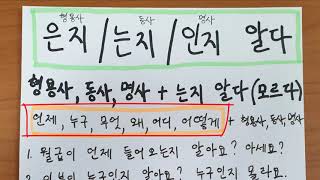 형용사 동사 명사
은지/는지/인지 알다
형용사, 동사, 명사 + 는지 알다(모르다)
언제, 누구, 무엇, 왜, 어디, 어떻게 + 형용사, 동사, 명사
1. 월급이 언제 들어오는지 알아요? 아세요?
누구인지 알아요? 누구인지 몰라요.